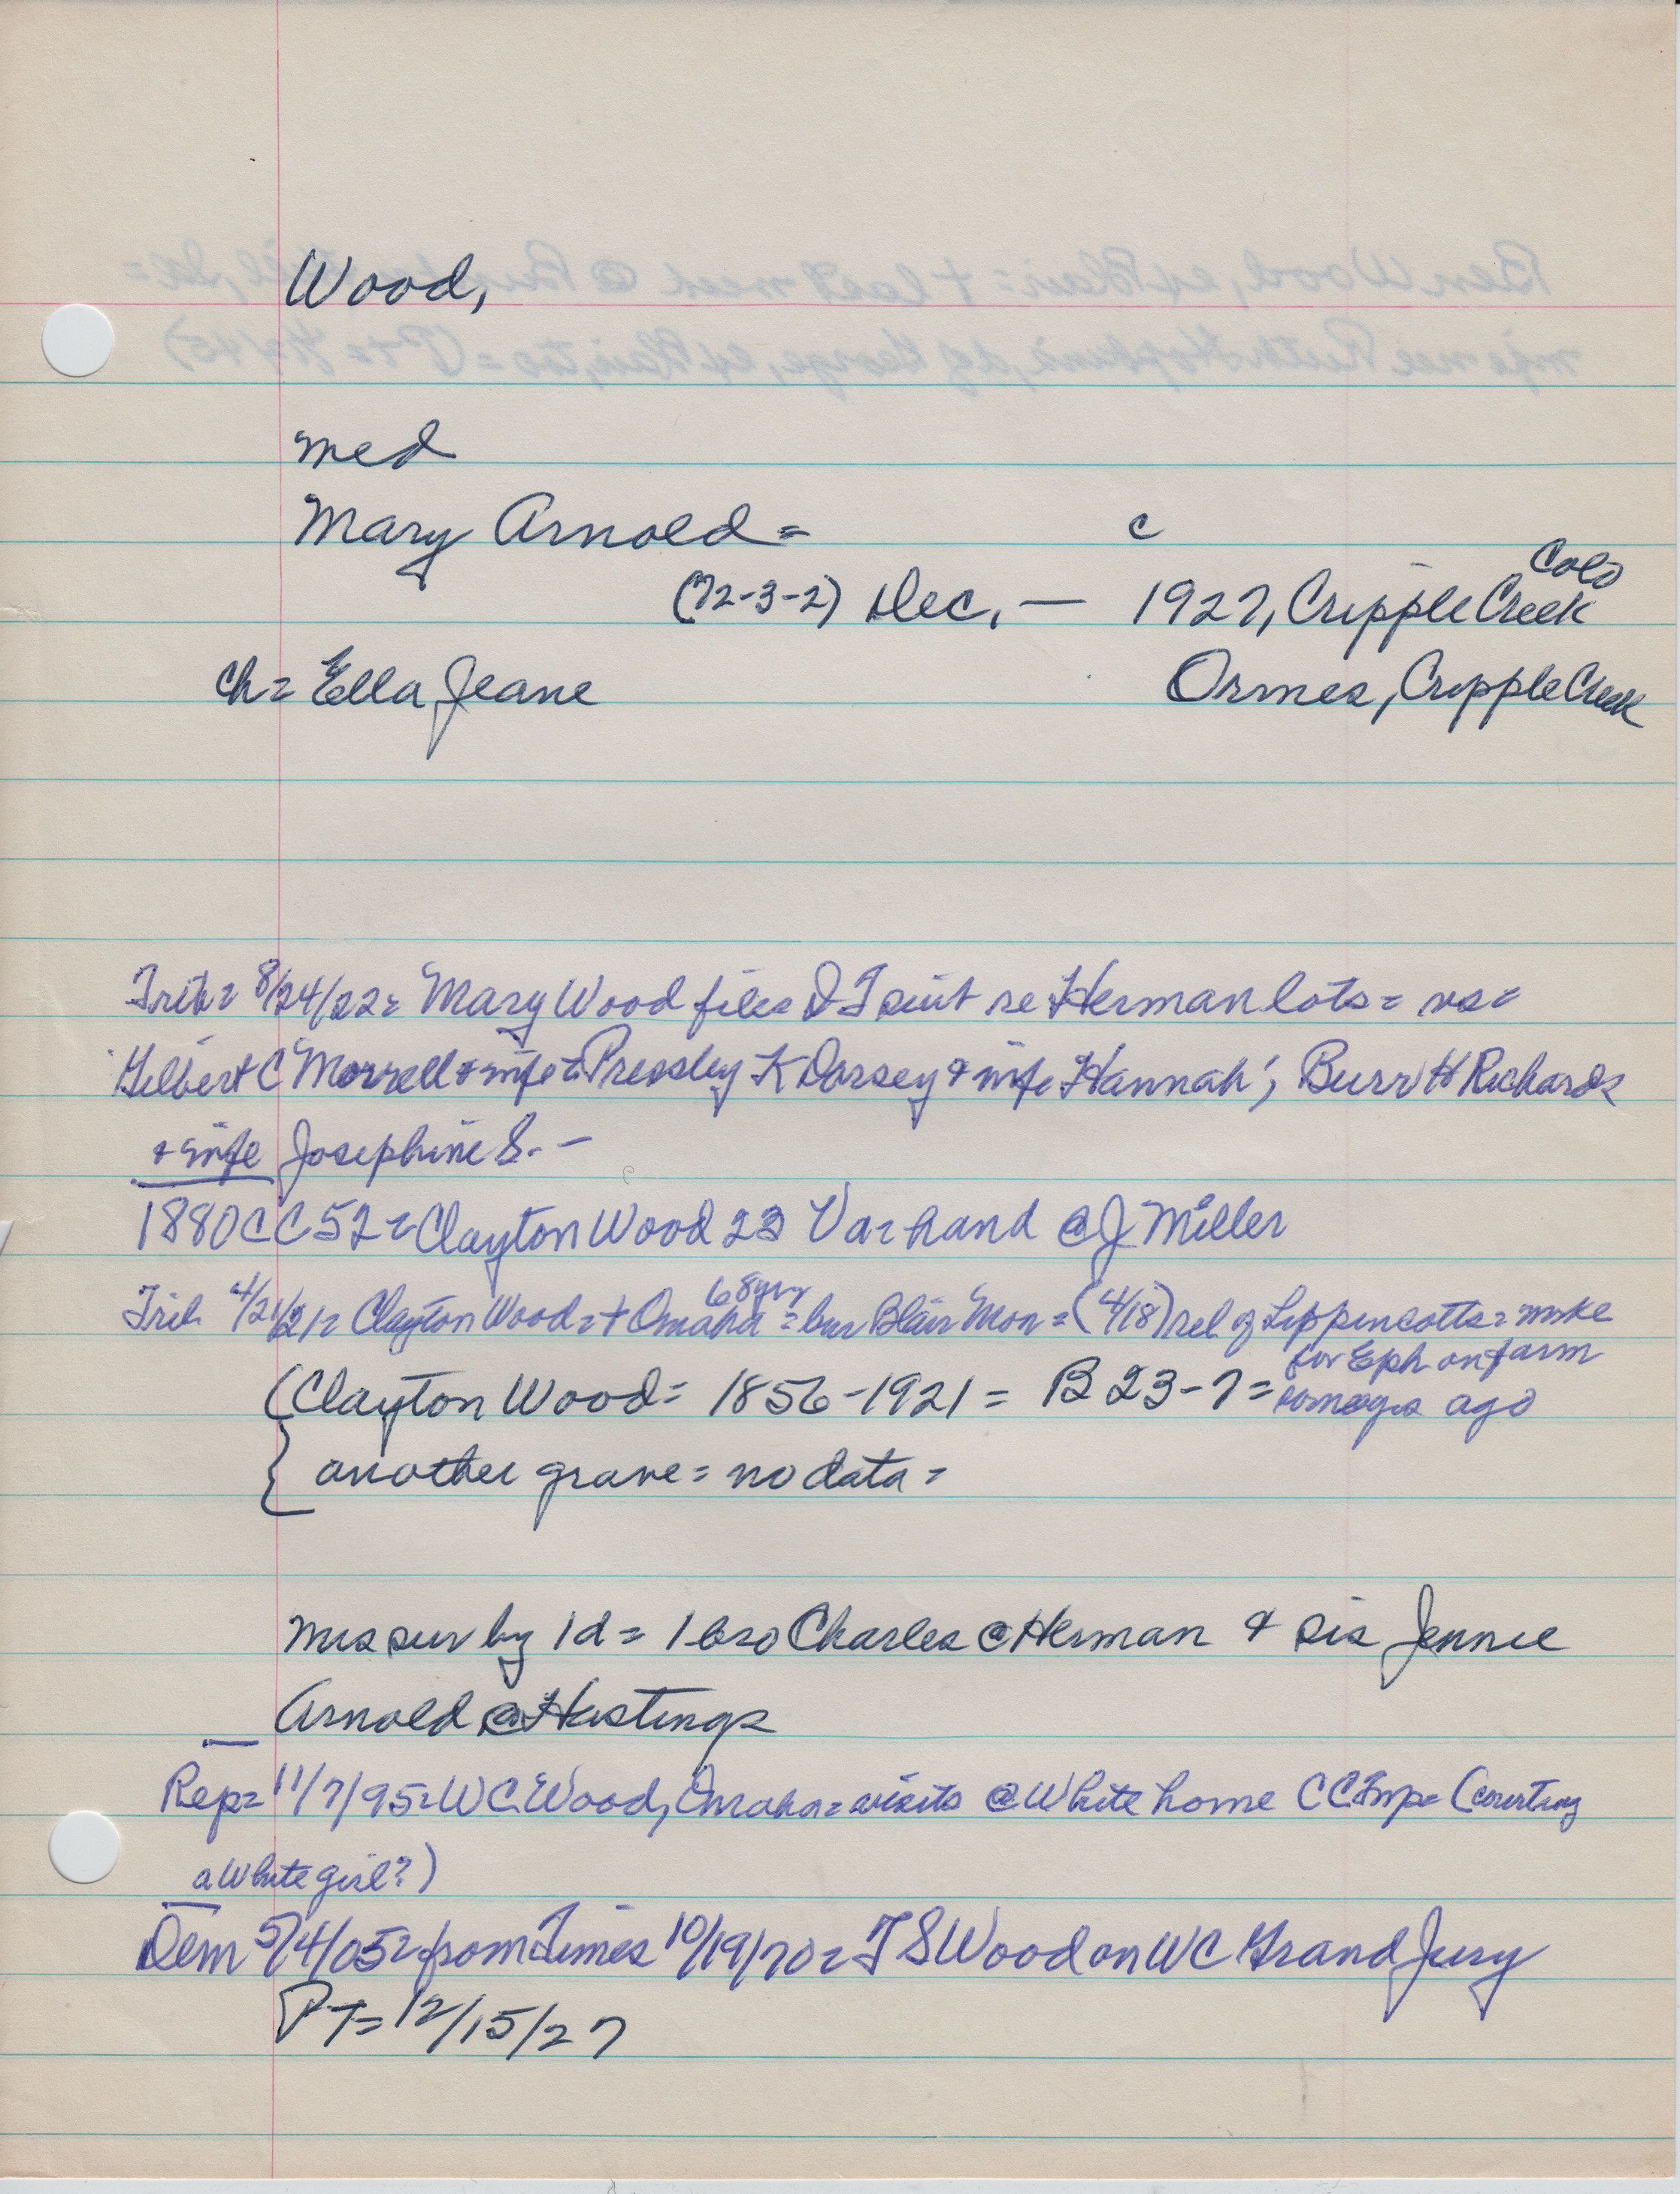 Wood,
med
Mary Arnold = c
Colo
(72-3-2) Dec. — 1927, Cripple Creek
ch = Ella Jeane Ormes, Cripple Creek
Trib = 8/24/22 = Mary Wood files Q T suit re Herman lots = vs =
Gilbert C Morrell & wife = Pressley K Dorsey & wife Hannah; Burr H Richards
& wife Josephine S. —
1880 CC 52 = Clayton Wood 23 Va = hand @ J Miller
68 yrs
Trib 4/21/21 = Clayton Wood = + Omaha = bur Blair Mon = (4/18) rel of Lippencotts = works
for Eph on farm
(Clayton Wood = 1856 - 1921 = B 23-7 = ago
another grave = no data =
Mrs sur by 1 d = 1 bro Charles @ Herman & sis Jennie
Arnold @ Hastings
Rep = 11/7/95 = W C Wood, Omaha = visits @ White home CC Twp = (courting
a White girl?)
Dem 5/4/05 = from Times 10/19/70 = T S Wood on WC Grand Jury
PT = 12/15/27